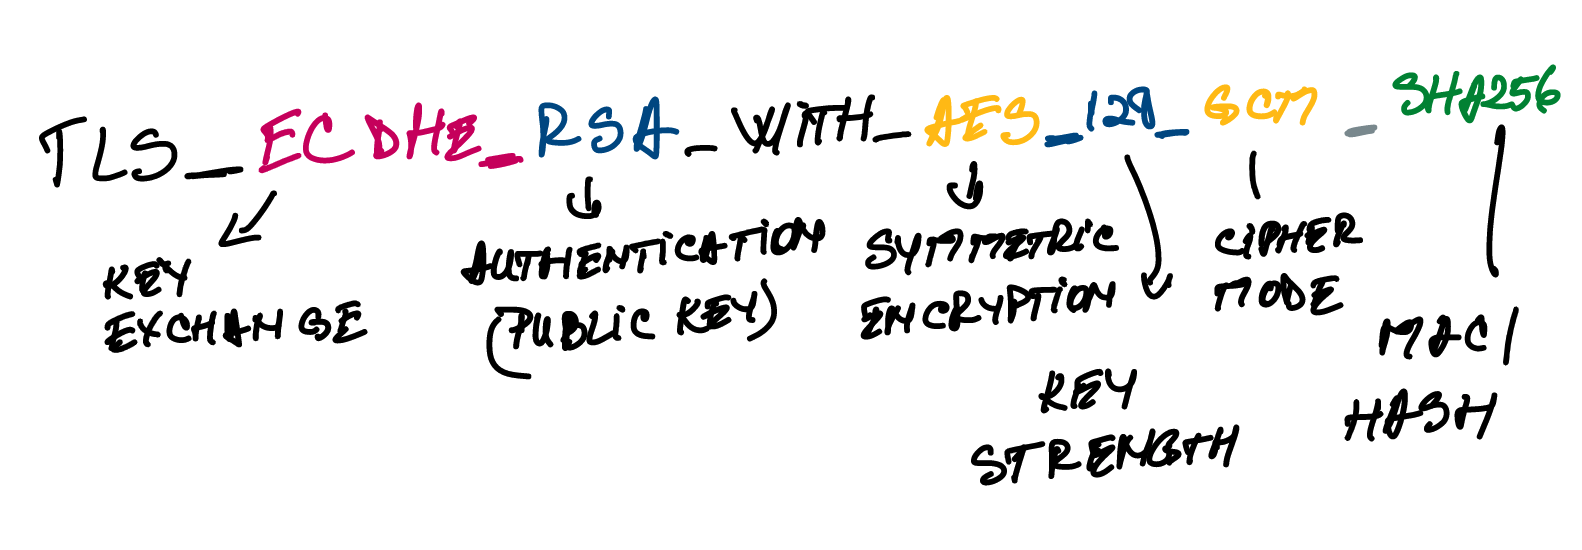 TLS_ECDHE_RSA_WITH_AES_128_GCM_SHA256
KEY
EXCHANGE
AUTHENTICATION
(PUBLIC KEY)
SYMMETRIC
ENCRYPTION
KEY
STRENGTH
CIPHER
MODE
MAC/
HASH